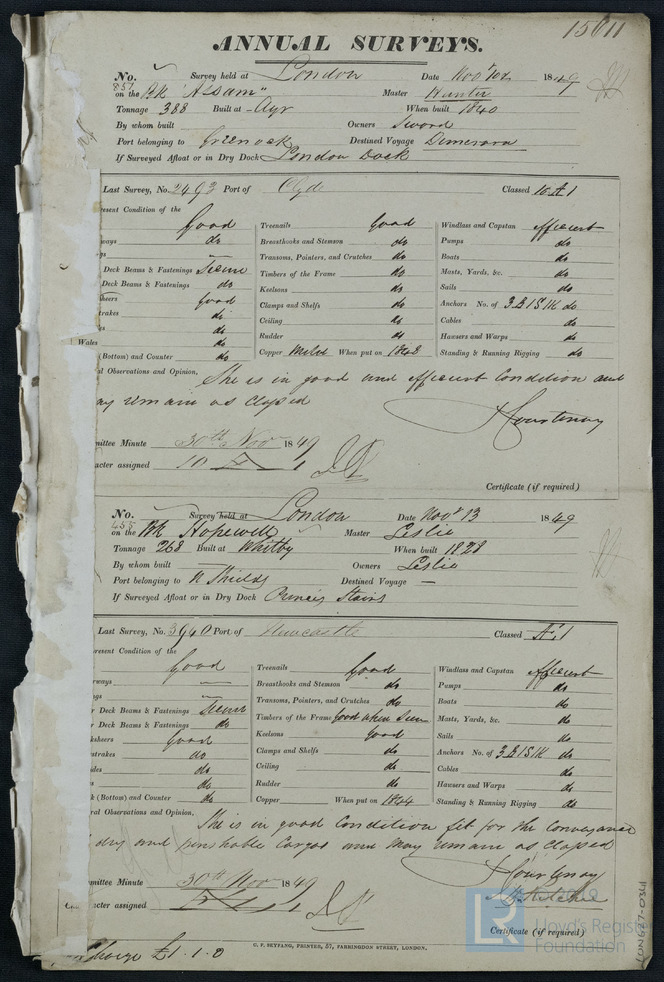 15011
ANNUAL SURVEYS.
No. 851 Survey held at London Date Novr 10th 1849
on the Bk "Assam" Master Hunter
Tonnage 388 Built at Ayr When built 1840
By whom built Owners Sword
Port belonging to Greenock Destined Voyage Demerara
If Surveyed Afloat or in Dry Dock London Dock
Last Survey, No. 2492 Port of Clyde Classed 10 A 1
resent Condition of the
Good Treenails Good Windlass and Capstan efficient
ways do Breasthooks and Stemson do Pumps do
gs — Transoms, Pointers, and Crutches do Boats do
Deck Beams & Fastenings Secure Timbers of the Frame do Masts, Yards, &c. do
Deck Beams & Fastenings do Keelsons do Sails do
sheers Good Clamps and Shelfs do Anchors No. of 3 B 1 S 1 K do
trakes do Ceiling do Cables do
es do Rudder do Hawsers and Warps do
Wales do
(Bottom) and Counter do Copper Metld When put on 1848 Standing & Running Rigging do
al Observations and Opinion, She is in good and efficient Condition and
ay remain as classed
Courtenay
mittee Minute 30th Nov 1849
acter assigned 10 A 1
Certificate (if required)
No. 455 Survey held at London Date Novr 13 1849
on the Bk Hopewell Master Leslie
Tonnage 268 Built at Whitby When built 1828
By whom built Owners Leslie
Port belonging to N Shields Destined Voyage —
If Surveyed Afloat or in Dry Dock Princes Stairs
Last Survey, No. 3940 Port of Newcastle Classed Æ 1
resent Condition of the
Good Treenails Good Windlass and Capstan efficient
rways — Breasthooks and Stemson do Pumps do
ngs — Transoms, Pointers, and Crutches do Boats do
r Deck Beams & Fastenings Secure Timbers of the Frame Good when seen Masts, Yards, &c. do
r Deck Beams & Fastenings do Keelsons Good Sails do
ksheers Good Clamps and Shelfs do Anchors No. of 3 B 1 S 1 K do
strakes do Ceiling do Cables do
ides do
s do Rudder do Hawsers and Warps do
k (Bottom) and Counter do Copper When put on 1844 Standing & Running Rigging do
ral Observations and Opinion, She is in good Condition fit for the Conveyance
dry and perishable Cargos and may remain as classed
Courtenay
mmittee Minute 30th Nov 1849
aracter assigned Æ 1
Certificate (if required)
Charge £1.1.0
G. F. SEYFANG, PRINTER, 57, FARRINGDON STREET, LONDON.
LR
Lloyd's Register
Foundation
LON627-0361